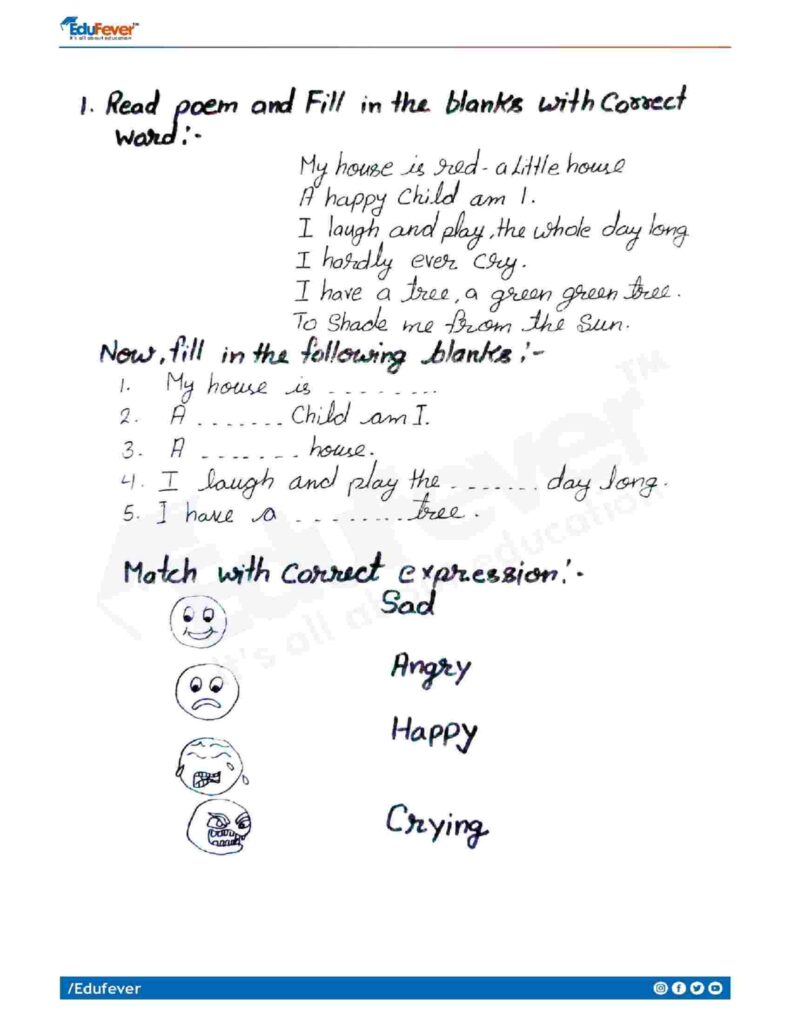 EduFever™
It's all about education
1. Read poem and Fill in the blanks with Correct
Word:-
My house is red - a Little house
A happy Child am I.
I laugh and play, the whole day long
I hardly ever cry.
I have a tree, a green green tree.
To Shade me from the Sun.
Now, fill in the following blanks:-
1. My house is ........
2. A ....... Child am I.
3. A ....... house.
4. I laugh and play the ....... day long.
5. I have a ........ tree.
Match with Correct expression:-
Sad
Angry
Happy
Crying
EduFever™
It's all about education
/Edufever